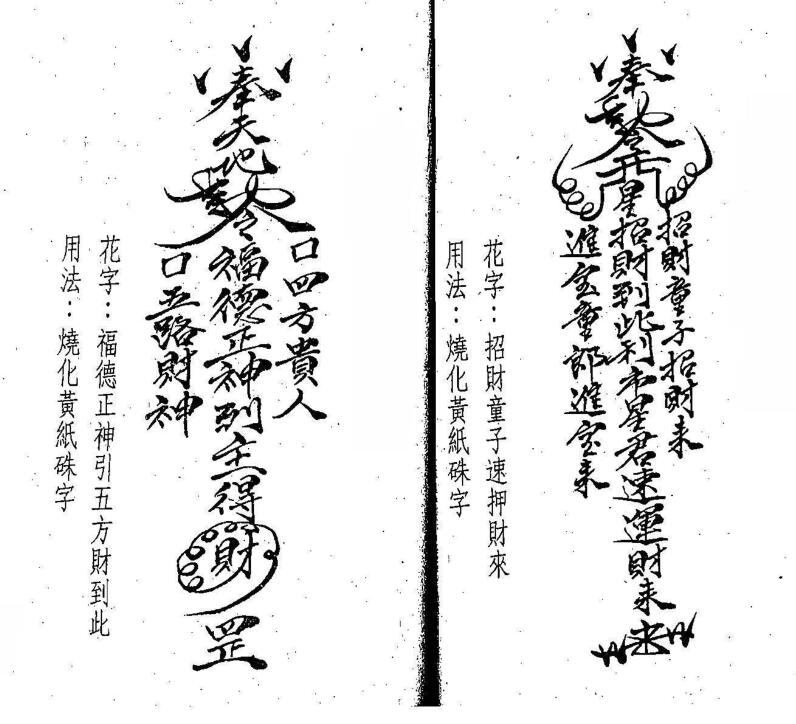 奉
開星招財到此利市星君速運財来
招財童子招財来
進宝童郎進宝来
花字：招財童子速押財來
用法：燒化黃紙硃字
奉天地
令福德正神到主得財罡
口四方貴人
口五路財神
花字：福德正神引五方財到此
用法：燒化黃紙硃字